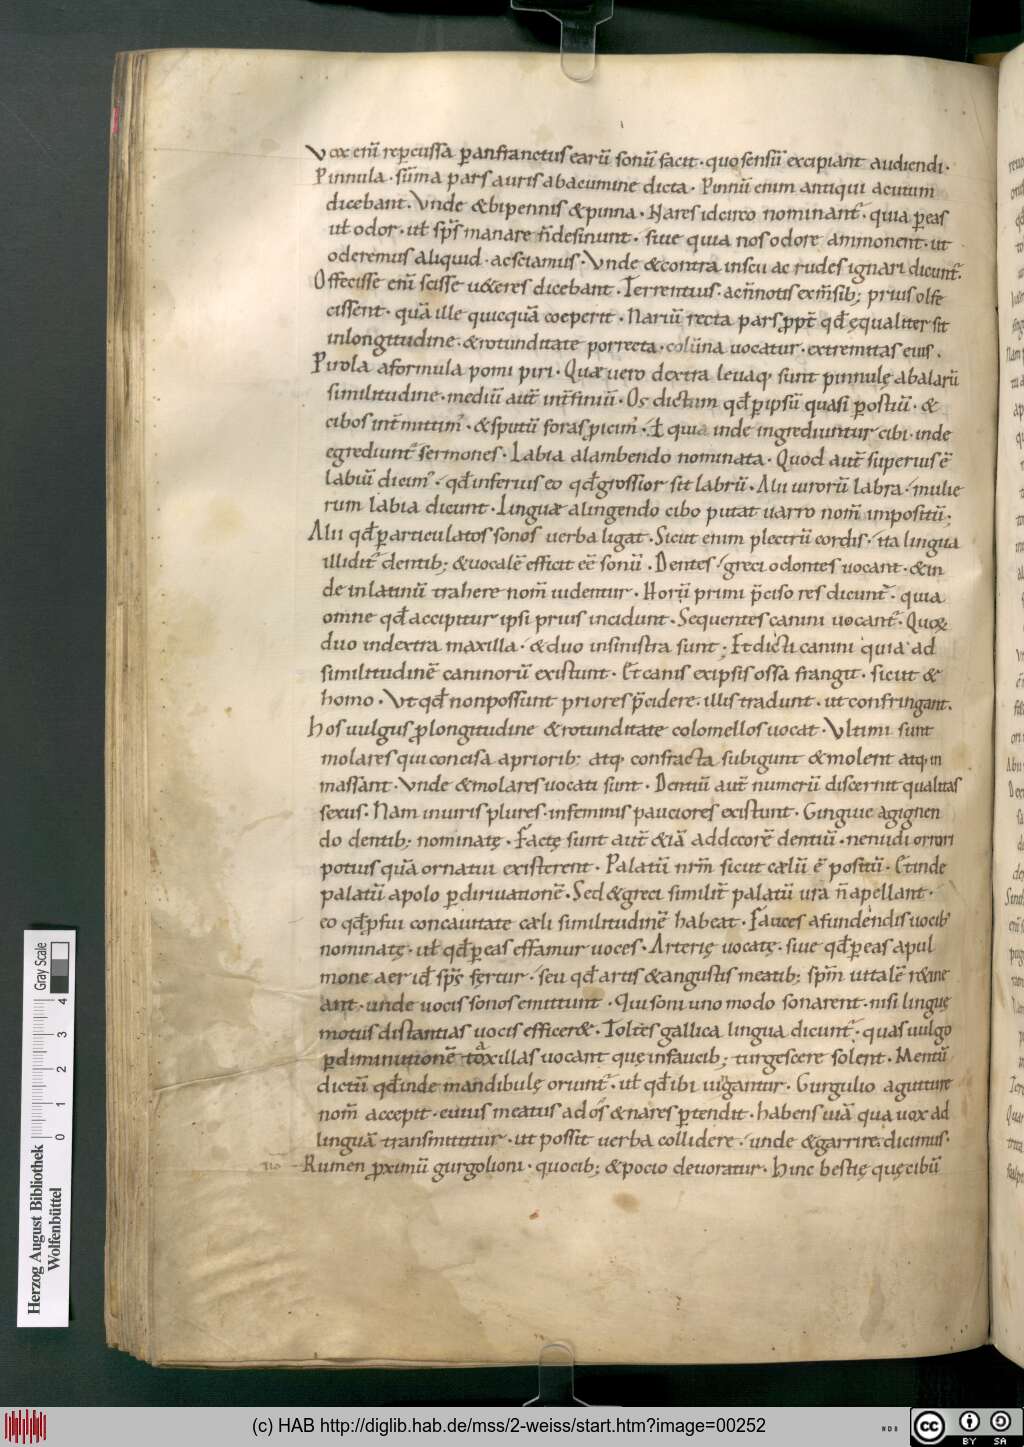 Vox eni᷑ repcussa p anfranctus earū sonū facit · quo sensū excipiant audiendi ·
Pinnula · sūma pars auris ab acumine dicta · Pinnū enim antiqui acutum
dicebant · Vnde & bipennis & pinna · Nares idcirco nominant᷑ · quia p eas
uƚ odor · uƚ sp̄s manare n̄ desinunt · siue quia nos odore ammonent · ut
oderemus aliquid · ac sciamus · Vnde & contra inscii ac rudes ignari dicunt᷑ ·
Offecisse eni᷑ scisse u&eres dicebant · Terrentius · ac n̄ notis ex m̄sib; prius olfe
cissent · quā ille quicquā coeperit · Nariū recta pars ꝓpt̄ qđ ęqualiter sit
in longitudine · & rotunditate porrecta · colūna uocatur · extremitas eius ·
Pirola a formula pomi piri · Quæ uero dextra leuaq; sunt pinnulę ab alarū
similitudine · mediū aut̄ int̄finiū · Os dictum qđ p ipsū quasi p ostiū · &
cibos int̄mittim᷒ · & sputū foras ꝓicim᷒ · ƚ quia inde ingrediuntur cibi · inde
egrediunt᷑ sermones · Labia a lambendo nominata · Quod aut̄ superius ē
labiū dicim᷒ · qđ inferius eo qđ grossior sit labrū · Alii uirorū labra · mulie
rum labia dicunt · Linguæ a lingendo cibo putat uarro nom̄ impositū ·
Alii qđ p articulatos sonos uerba ligat · Sicut enim plectrū cordis · ita lingua
illidit᷑ dentib; & uocalē efficit eē sonū · Dentes · greci odontes uocant · & in
de in latinū trahere nom̄ uidentur · Horū primi p̄cisores dicunt᷑ · quia
omne qđ accipitur ipsi prius incidunt · Sequentes canini uocant᷑ · Quoꝝ
duo in dextra maxilla · & duo in sinistra sunt · Et dicti canini quia ad
similitudinē caninorū existunt · Et canis ex ipsis ossa frangit · sicut &
homo · Vt qđ non possunt priores p̄cidere · illis tradunt · ut confringant ·
Hos uulgus ꝓ longitudine & rotunditate colomellos uocat · Vltimi sunt
molares qui concisa a priorib; atq; confracta subigunt & molent atq; in
massant · Vnde & molares uocati sunt · Dentiū aut̄ numerū discernit qualitas
sexus · Nam in uiris plures · in feminis pauciores existunt · Ginguie a gignen
do dentib; nominatę · Factę sunt aut̄ & iā ad decorē dentiū · ne nudi orrori
potius quā ornatui existerent · Palatū nrm̄ sicut cælū ē positū · Et inde
palatū a polo p diriuationē · Sed & greci similit̄ palatū ura n̄ apellant ·
eo qđ p sui concauitate cæli similitudinē habeat · Fauces a fundendis uocib᷒
nominatę · uƚ qđ p eas effamur uoces · Arterię uocatę · siue qđ p eas a pul
mone aer iđ sp̄s fertur · seu qđ artis & angustis meatib; spm̄ uitalē r&ine
ant · unde uocis sonos emittunt · Qui soni uno modo sonarent · nisi linguę
motus distantias uocis efficer& · Toltes gallica lingua dicunt᷑ · quas uulgo
p diminutionē toxillas uocant quę in faucib; turgescere solent · Mentū
dictū qđ inde mandibulę oriunt᷑ · uƚ qđ ibi iugantur · Gurgulio a gutture
nom̄ accepit · cuius meatus ad os & nares p tendit · habens uiā qua uox ad
linguā transmittitur · ut possit uerba collidere · unde & garrire dicimus ·
Rumen ꝓximū gurgolioni · quo cib; & pocio deuoratur · Hinc bestię quę cibū
Herzog August Bibliothek
Wolfenbüttel
0 1 2 3 4
Gray Scale
(c) HAB http://diglib.hab.de/mss/2-weiss/start.htm?image=00252
cc BY SA